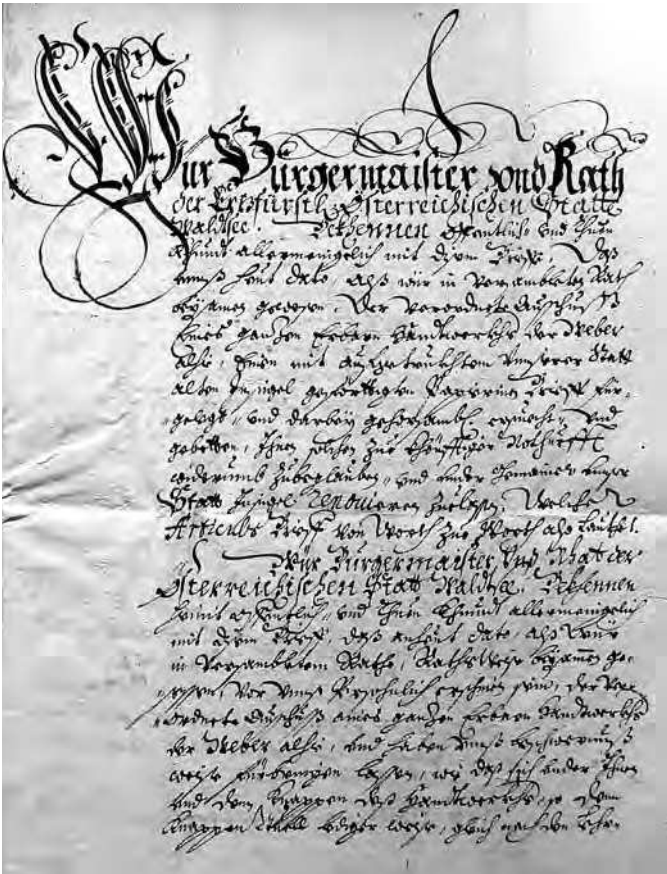 Wür Bürgermaister vnd Rath
der Ertzfürstl: Österreichischen Statt
Waldsee. Bekhennen offentlich vnd thuen
khundt allermenigelich mit disem Brieff, Daß
vnnß heut dato, alß wür in Versambleten Rath
beysamen gewesen, Der verordnete Außschuß
eines ganzen Erbarn Handtwerkhs der Weber
alhie, Einen mit vnserer Statt
alten Insigel gefertigten Brieff für-
gelegt, vnd darbey gehorsambl. ersuecht, vnd
gebetten, Ihnen solchen zue khönfftiger Nothurfft
widerumb zubeglauben, vnd vnder vnser
Statt Insigel Renouieren zuelassen, Welcher
Articuls Brieff von Worth zue Worth also lauthet.
Wür Burgermaister vnd Rhat der
Österreichischen Statt Waldsee, Bekhennen
hiemit offentlich, vnd thuen khundt allermenigelich
mit disem Brieff, daß anheut dato, alß Wür
in Versambletem Rathe, Rathsweiß beysamen ge-
sessen, Vor vnnß Persohnlich erschinen sein, der ver-
ordnete Außschuß aines ganzen Erbarn Handtwerkhs
der Weber alhie, vnd haben vnnß
weiß fürbringen lassen, wie daß sich vnder Ihnen
vnd den Knappen deß Handtwerkhs, so dem
Knappen lediger weiß, gleich nach den Lehr-